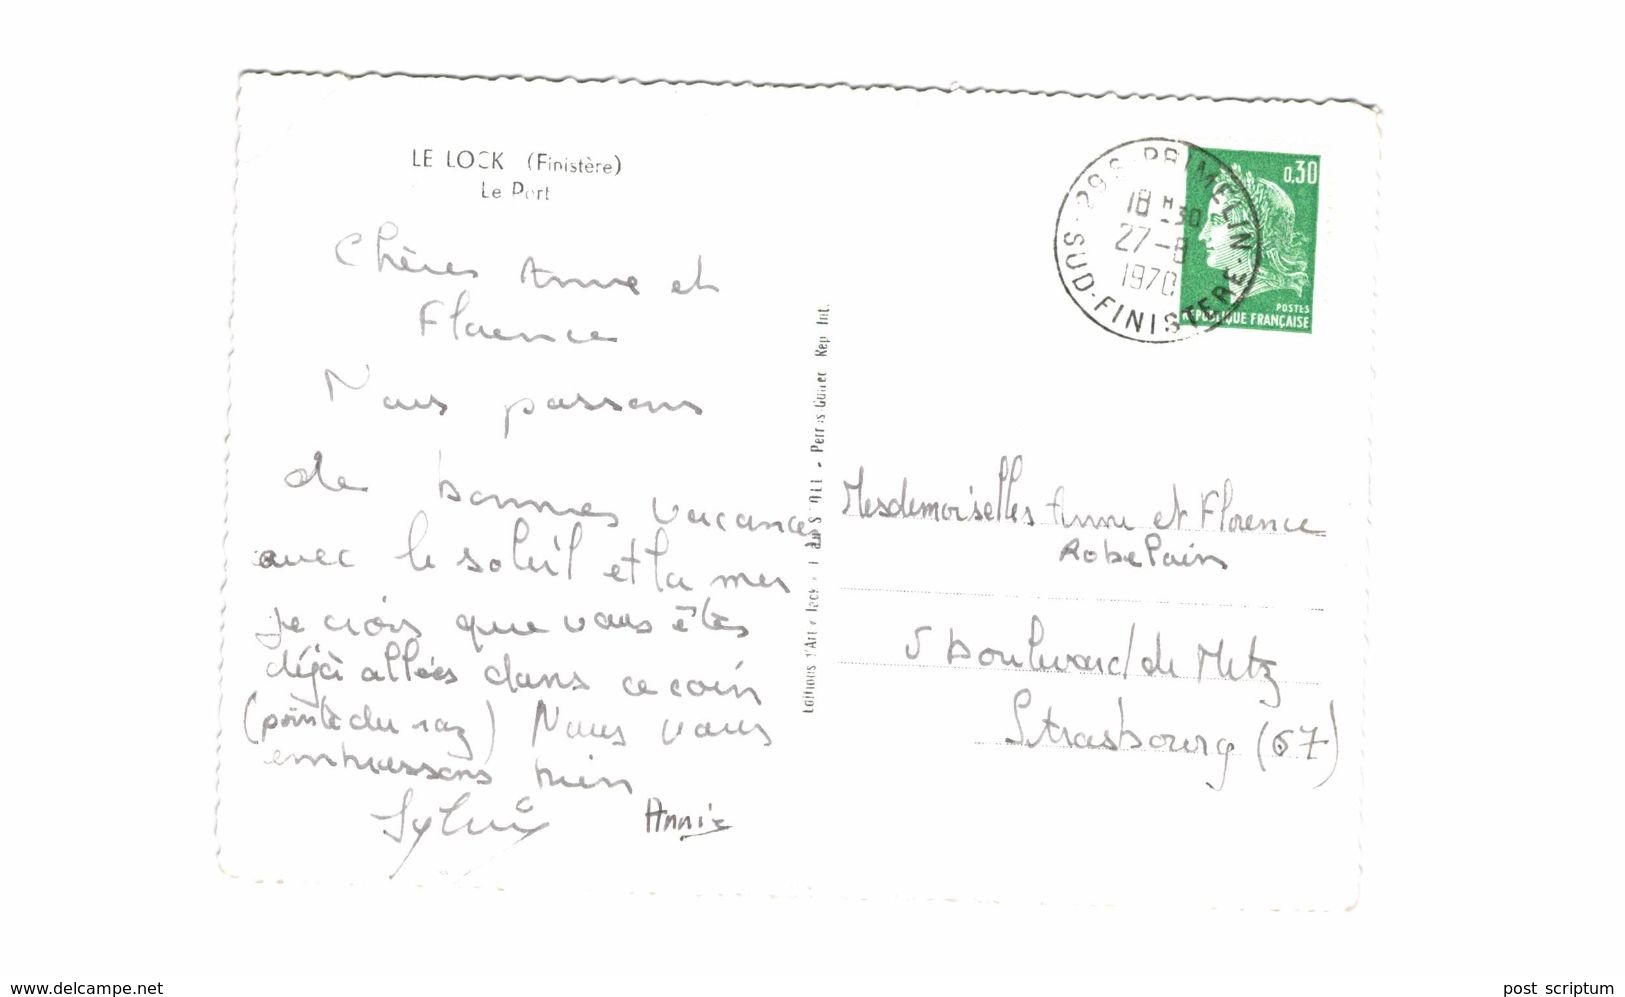 LE LOCK (Finistère)
Le Port
Chères Anne et
Florence
Nous passons
de bonnes vacances
avec le soleil et la mer
je crois que vous êtes
déjà allées dans ce coin
(pointe du raz) Nous vous
embrassons bien
Sylvie Annie
Editions d'Art " Jack "
Perros-Guirec Rep Int.
29 S PRIMELIN
18 H -30
27-8
1970
SUD-FINISTERE
0,30
POSTES
REPUBLIQUE FRANÇAISE
Mesdemoiselles Anne et Florence
5 Boulevard de Metz
Strasbourg (67)
www.delcampe.net
post scriptum